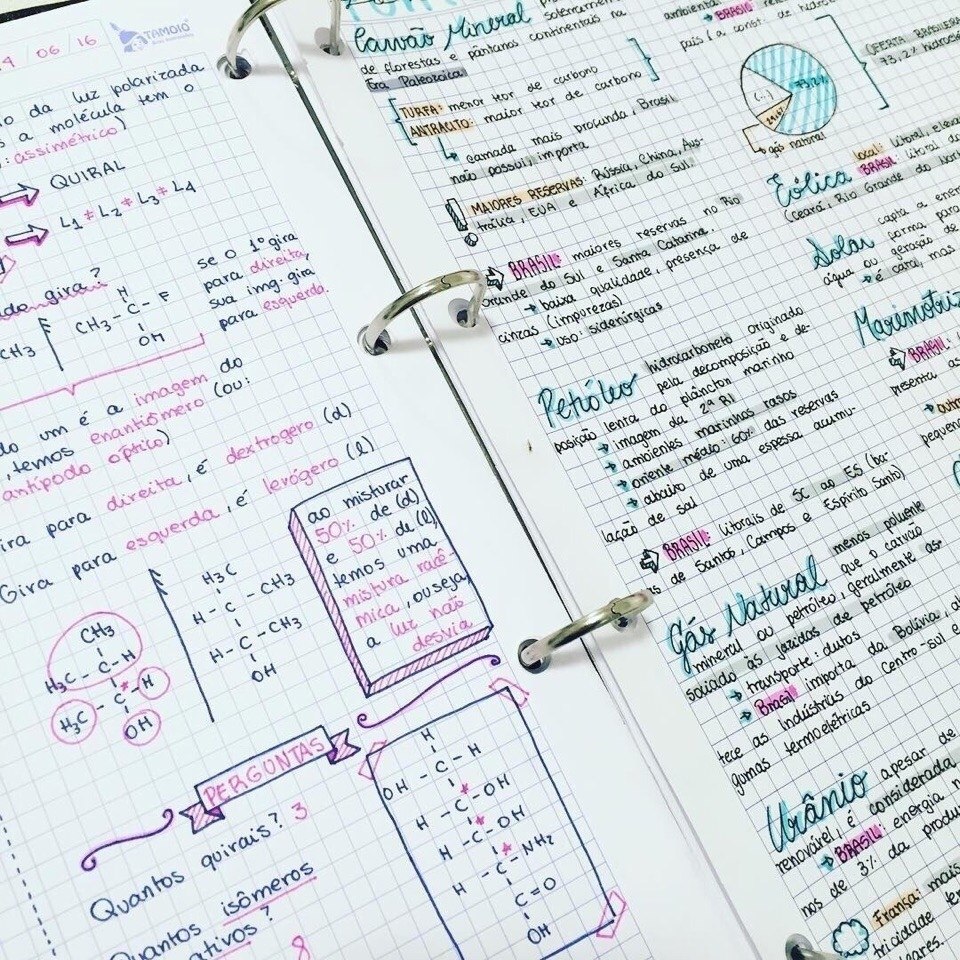 06 / 16
TAMOIO
da luz polarizada
a molécula tem o
assimétrico)
QUIRAL
L1 ≠ L2 ≠ L3 ≠ L4
gira?
se o 1º gira
para direita,
sua img. gira
para esquerda.
H
CH3 - C - F
OH
CH3
um é a imagem do
, temos enantiômero (ou:
antípodo óptico)
para direita, é dextrogero (d)
Gira para esquerda, é levógero (l)
ao misturar
50% de (d)
e 50% de (l),
temos uma
mistura racê-
mica, ou seja,
a luz não
desvia
H3C
H - C - CH3
H - C - CH3
OH
CH3
H3C - C - H
H3C - C* - H
OH
PERGUNTAS
Quantos quirais? 3
Quantos isômeros
ativos?
8
H
OH - C - H
H - C* - OH
H - C* - OH
H - C* - NH2
C = O
OH
Carvão Mineral
de florestas e pântanos continentais na
Era Paleozoica
TURFA: menor teor de carbono
ANTRACITO: maior teor de carbono
camada mais profunda, Brasil
não possui, importa
MAIORES RESERVAS: Rússia, China, Aus-
trália, EUA e África do Sul
BRASIL: maiores reservas no Rio
Grande do Sul e Santa Catarina.
baixa qualidade, presença de
cinzas (impurezas)
uso: siderúrgicas
Petróleo hidrocarboneto originado
pela decomposição e de-
posição lenta do plâncton marinho
imagem da 2ª RI
ambientes marinhos rasos
oriente médio: 60% das reservas
abaixo de uma espessa acumu-
lação de sal
BRASIL: litorais de SC ao ES (ba-
de Santos, Campos e Espírito Santo)
Gás Natural menos poluente
que o carvão
mineral ou petróleo, geralmente as-
sociado às jazidas de petróleo
transporte: dutos
Brasil importa da Bolívia,
tece as indústrias do centro-sul e
gumas termoelétricas
Urânio apesar de
renovável, é considerada
BRASIL: energia
nos de 3% da
França: mais
tricidade
BRASIL
país (
OFERTA
73,2%
73,2%
(...)
gás natural
Eólica
local: litoral,
BRASIL: litoral do
(Ceará, Rio Grande do
Solar capta a
forma
água ou geração de
é cara, mas
BRASIL:
presenta